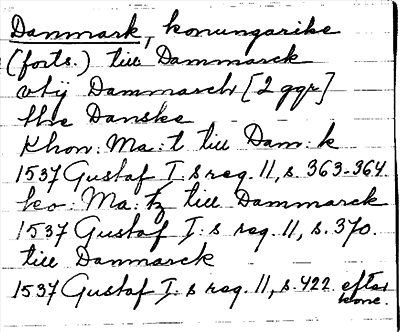 Danmark, konungarike
(forts.) till Dammarck
vtij Dammarch [2 ggr]
the Danske
Khon: Ma:t till Dam:k
1537 Gustaf I:s reg. 11, s. 363-364.
ko: Ma:tz till Dammarck
1537 Gustaf I:s reg. 11, s. 370.
till Danmarck
1537 Gustaf I:s reg. 11, s. 422. efter
konc.